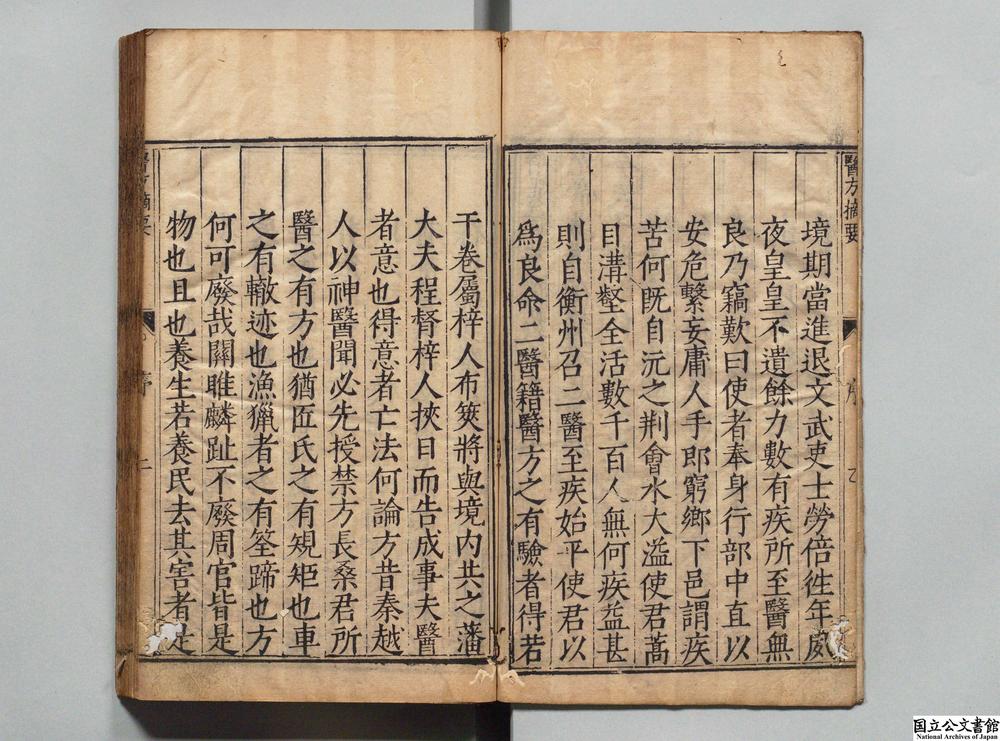 醫方摘要
序
境期當進退文武吏士勞倍徃年夙
夜皇皇不遺餘力數有疾所至醫無
良乃竊歎曰使者奉身行部中直以
安危繫妄庸人手卽窮鄉下邑謂疾
苦何旣自沅之荆會水大溢使君蒿
目溝壑全活數千百人無何疾益甚
則自衡州召二醫至疾始平使君以
爲良命二醫籍醫方之有驗者得若
干卷屬梓人布筴將與境内共之藩
大夫程督梓人挾日而告成事夫醫
者意也得意者亡法何論方昔秦越
人以神醫聞必先授禁方長桑君所
醫之有方也猶匠氏之有規矩也車
之有轍迹也漁獵者之有筌蹄也方
何可廢哉關雎麟趾不廢周官皆是
物也且也養生若養民去其害者是
醫方摘要
序
二
国立公文書館
National Archives of Japan